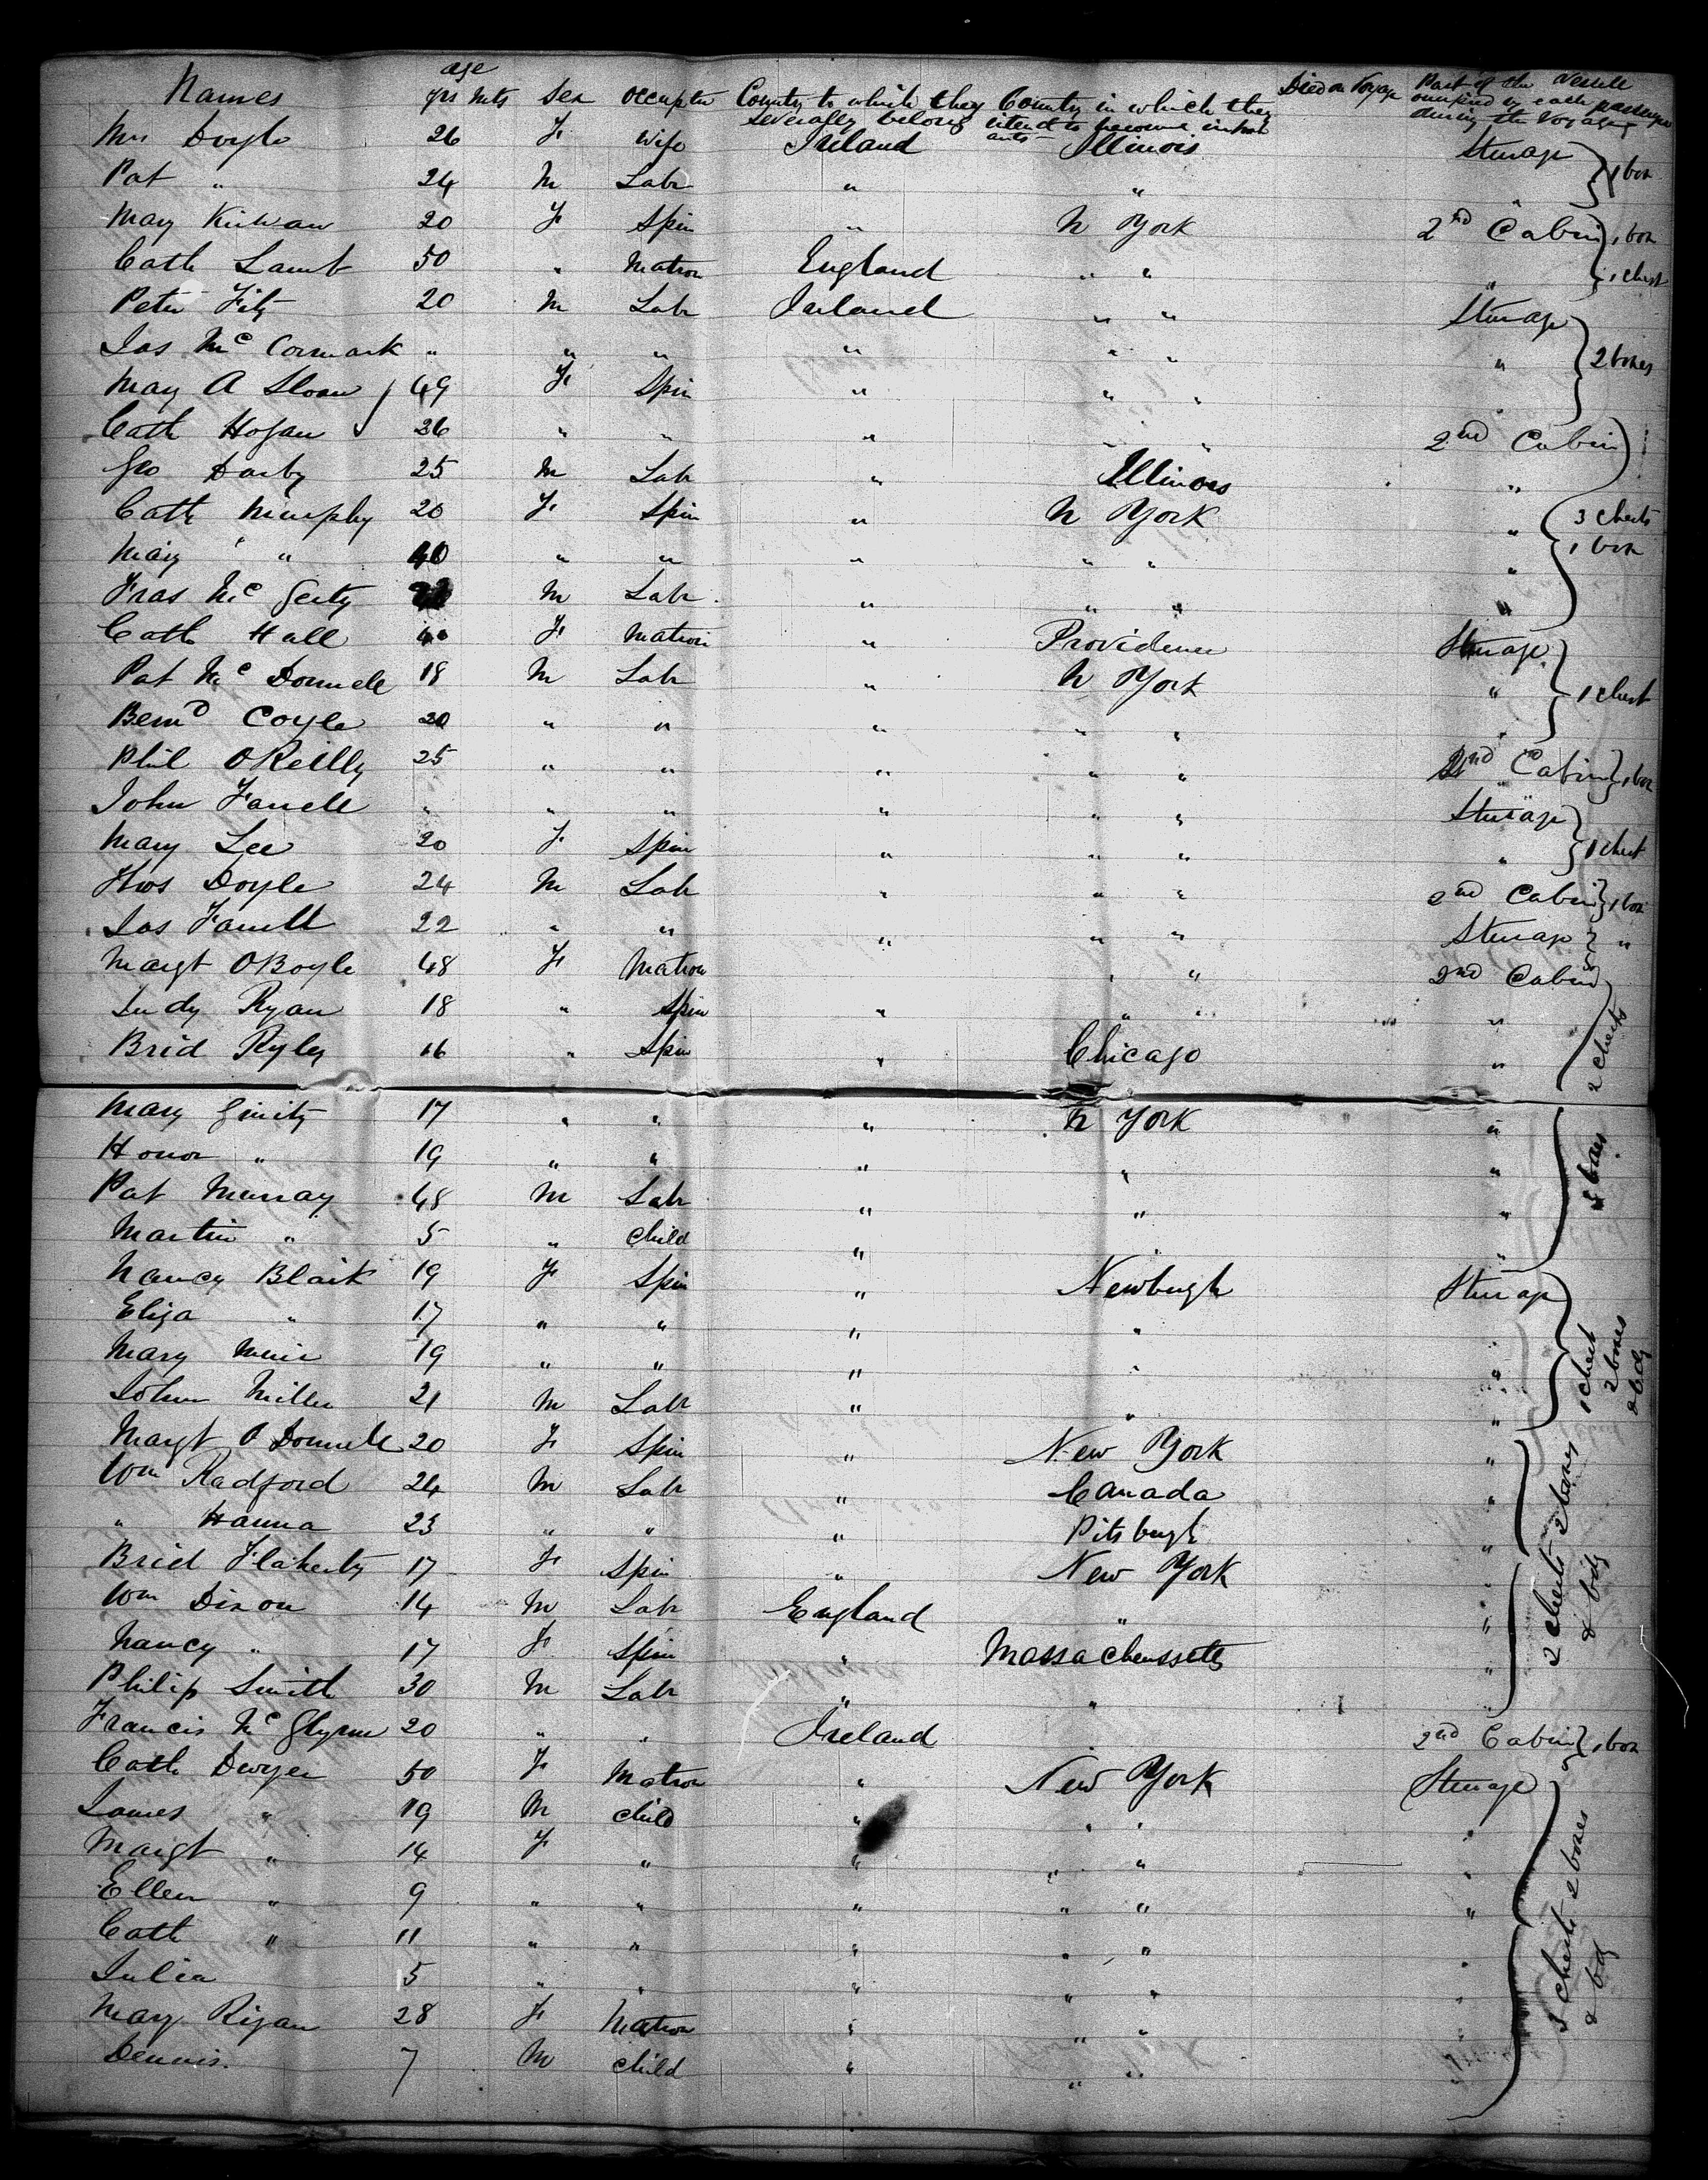 Names age yrs mts Sex Occupatn Country to which they severally belong Country in which they intend to become inhabitants Died on Voyage Part of the Vessele occupied by each passenger during the Voyage
Mrs Doyle 26 F Wife Ireland Illinois Sturage 1 box
Pat " 24 M Labr " " "
Mary Kirwan 20 F Spin " N York 2nd Cabin 1 box
Cath Lamb 50 " Matron England " " " 1 chest
Peter Fitz 20 M Labr Ireland " " Sturage
Jas McCormack " " " " " " " 2 boxes
Mary A Sloan 49 F Spin " " " "
Cath Hogan 26 " " " " " 2nd Cabin
Geo Darby 25 M Labr " Illinois "
Cath Murphy 20 F Spin " N York " 3 chests
Mary " 40 " " " " " " 1 box
Fras McGerty M Labr " " " "
Cath Hall 40 F Matron " Providence Sturage
Pat McDonnele 18 M Labr " N York " 1 chest
Bernd Coyle 20 " " " " " "
Phil OReilly 25 " " " " " 2nd Cabin 1 box
John Farrele " " " " " " Sturage
Mary Lee 20 F Spin " " " " 1 chest
Thos Doyle 24 M Labr " " " 2nd Cabin 1 box
Jas Farrell 22 " " " " " Sturage "
Margt OBoyle 48 F Matron " " 2nd Cabin
Judy Ryan 18 " Spin " " " "
Brid Ryley 16 " Spin " Chicago " 2 chests
Mary Ginity 17 " " " N York "
Honor " 19 " " " " "
Pat Murray 48 M Labr " " "
Martin " 5 " child " " "
Nancy Blaik 19 F Spin " Newburgh Sturage
Eliza " 17 " " " " "
Mary Muir 19 " " " " " 1 chest 2 boxes & bdg
John Miller 21 M Labr " " "
Margt O Donnele 20 F Spin " New York "
Wm Radford 24 M Labr " Canada " 2 chests 2 boxes & bdg
" Hanna 23 " " " Pitsburgh "
Brid Flaherty 17 F Spin " New York "
Wm Dixon 14 M Labr England " "
Nancy " 17 F Spin " Massachussetts "
Philip Smith 30 M Labr " " "
Francis McGlynn 20 " " Ireland " 2nd Cabin 1 box
Cath Dwyer 50 F Matron " New York Sturage
James " 19 M child " " " "
Margt " 14 F " " " " "
Ellen " 9 " " " " " "
Cath " 11 " " " " " " 3 chests 2 boxes & bdg
Julia 5 " " " " " "
Mary Rigan 28 F Matron " " " "
Dennis 7 M child " " " "